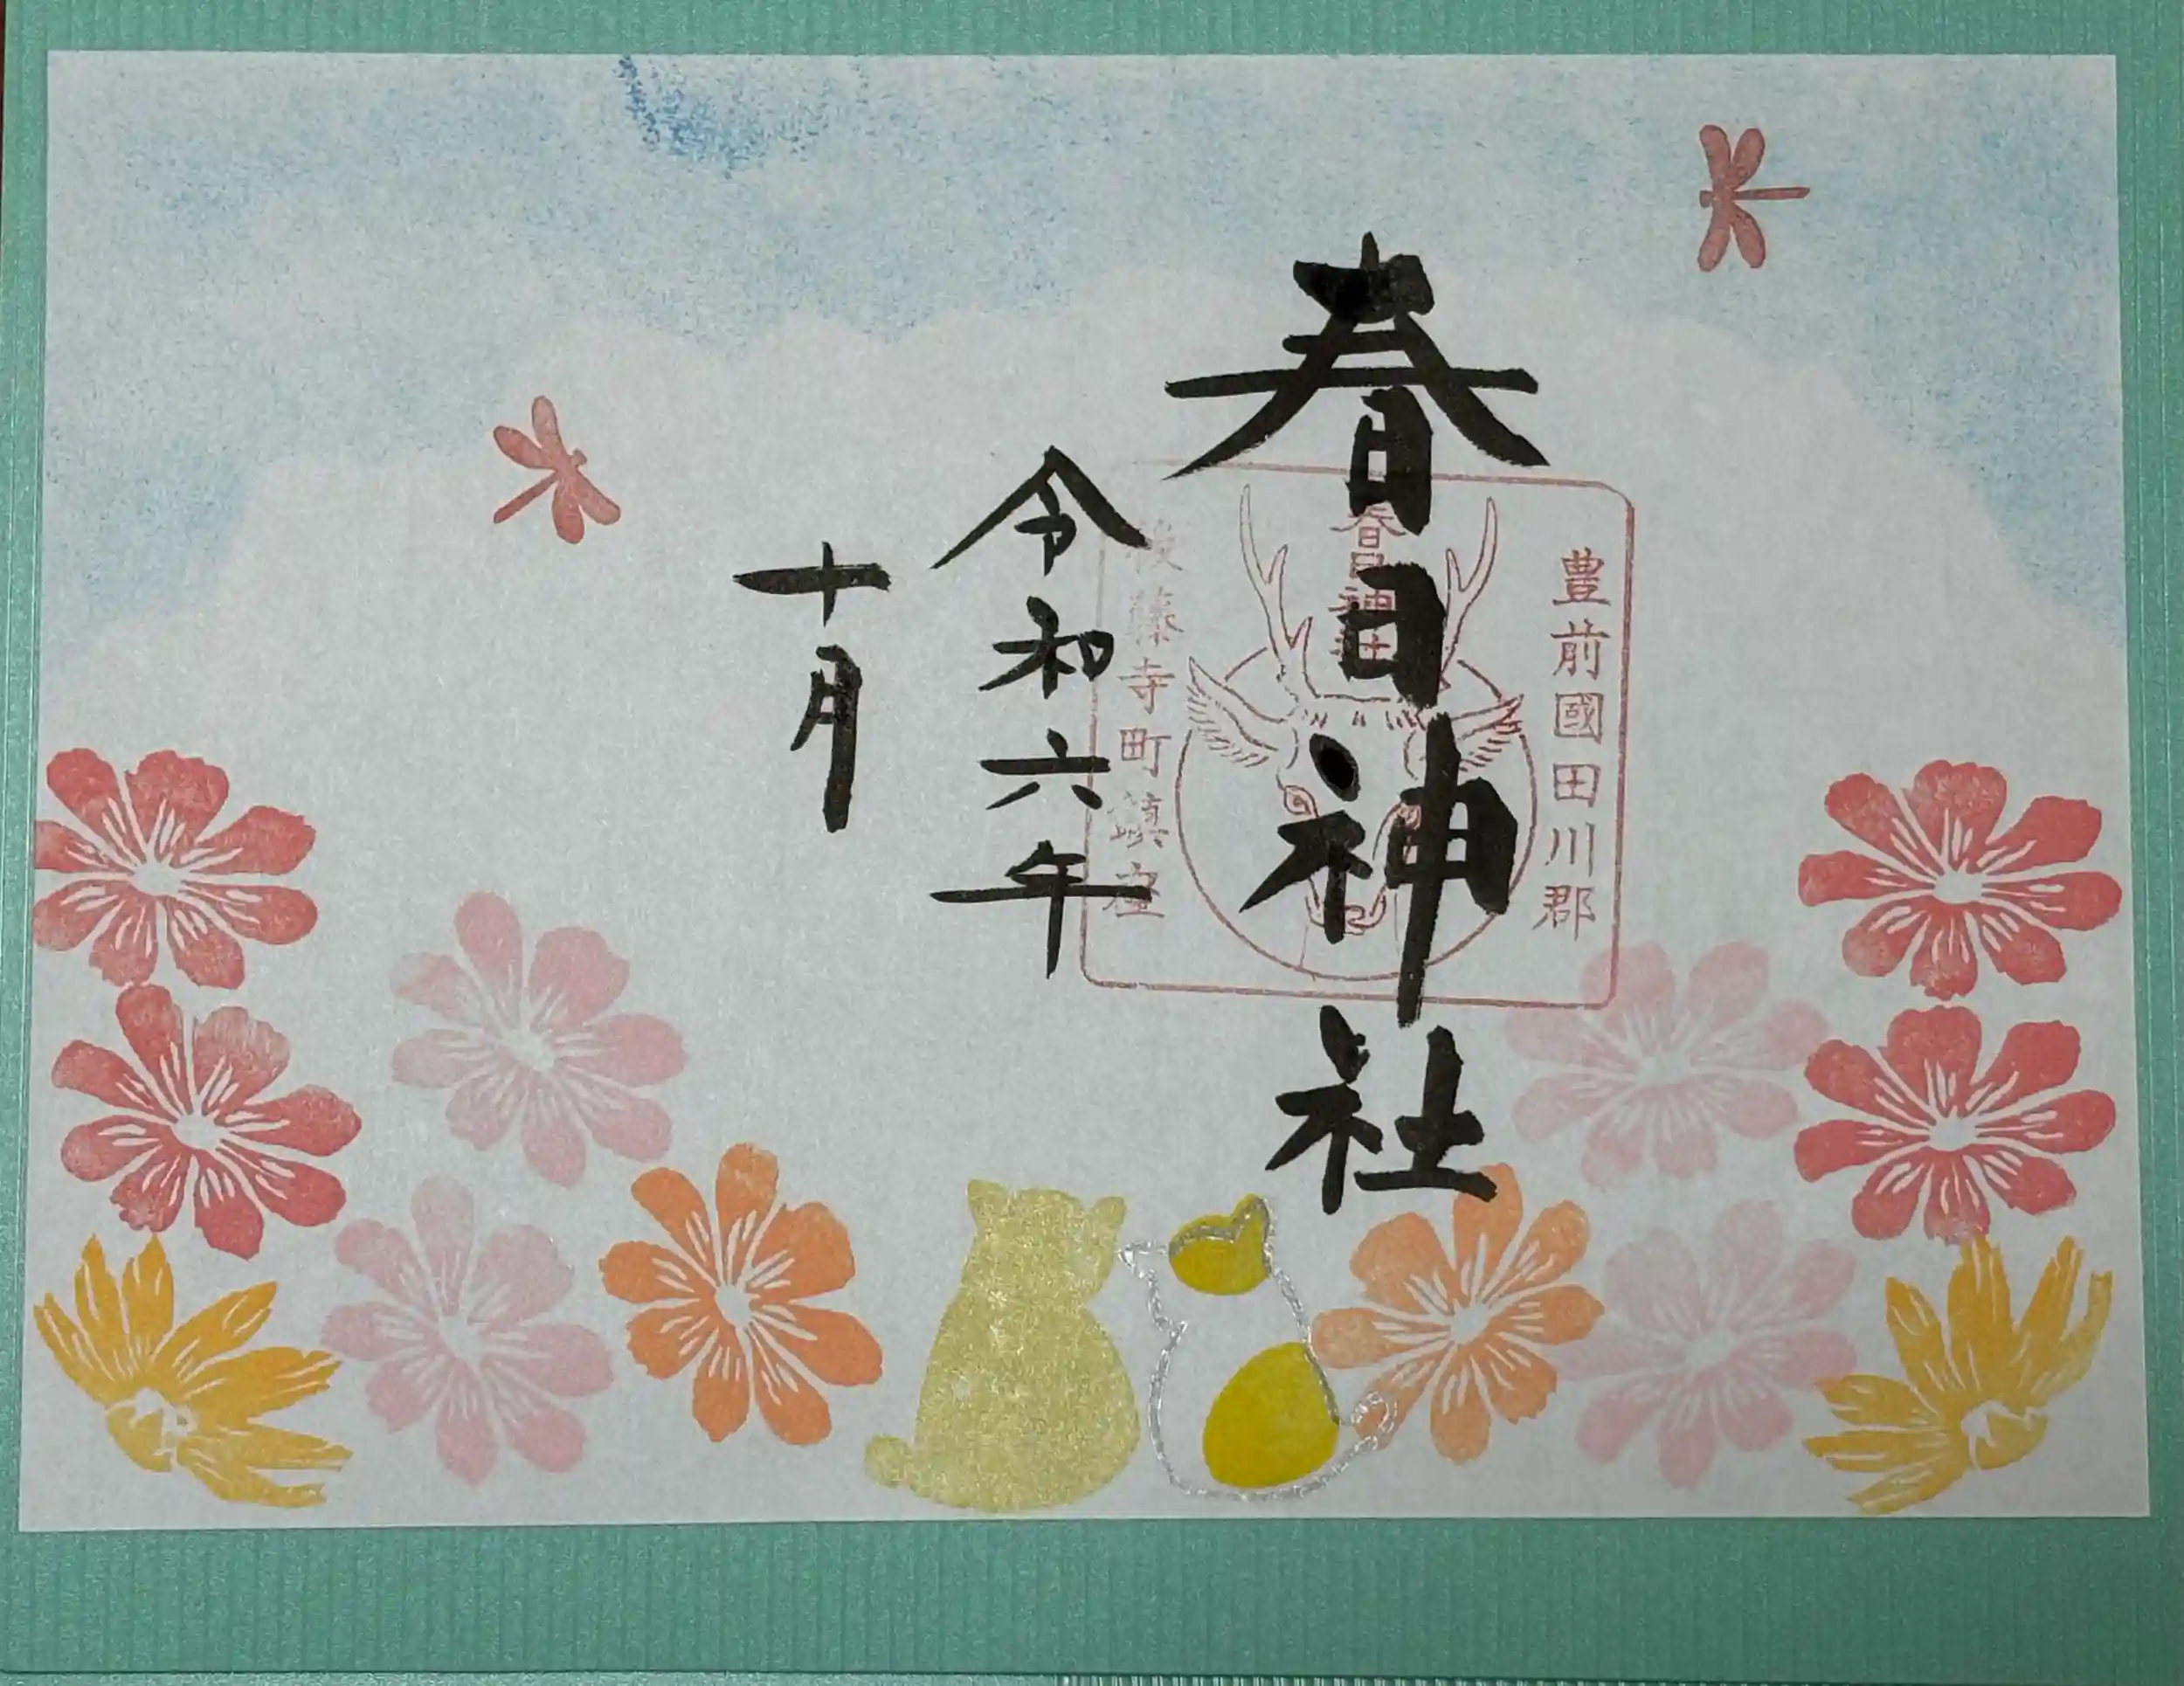 春日神社
豊前國田川郡
春日神社
後藤寺町鎮座
令和六年
十月